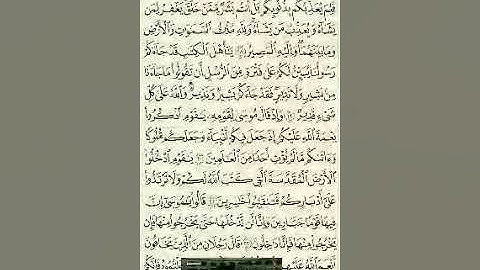 فَلِمَ يُعَذِّبُكُم بِذُنُوبِكُم بَلْ أَنتُم بَشَرٌ مِّمَّنْ خَلَقَ يَغْفِرُ لِمَن
يَشَآءُ وَيُعَذِّبُ مَن يَشَآءُ وَلِلَّهِ مُلْكُ ٱلسَّمَٰوَٰتِ وَٱلْأَرْضِ
وَمَا بَيْنَهُمَا وَإِلَيْهِ ٱلْمَصِيرُ ١٨ يَٰٓأَهْلَ ٱلْكِتَٰبِ قَدْ جَآءَكُمْ
رَسُولُنَا يُبَيِّنُ لَكُمْ عَلَىٰ فَتْرَةٍ مِّنَ ٱلرُّسُلِ أَن تَقُولُوا۟ مَا جَآءَنَا
مِنۢ بَشِيرٍ وَلَا نَذِيرٍ فَقَدْ جَآءَكُم بَشِيرٌ وَنَذِيرٌ وَٱللَّهُ عَلَىٰ كُلِّ
شَىْءٍ قَدِيرٌ ١٩ وَإِذْ قَالَ مُوسَىٰ لِقَوْمِهِۦ يَٰقَوْمِ ٱذْكُرُوا۟
نِعْمَةَ ٱللَّهِ عَلَيْكُمْ إِذْ جَعَلَ فِيكُمْ أَنۢبِيَآءَ وَجَعَلَكُم مُّلُوكًا
وَءَاتَىٰكُم مَّا لَمْ يُؤْتِ أَحَدًا مِّنَ ٱلْعَٰلَمِينَ ٢٠ يَٰقَوْمِ ٱدْخُلُوا۟
ٱلْأَرْضَ ٱلْمُقَدَّسَةَ ٱلَّتِى كَتَبَ ٱللَّهُ لَكُمْ وَلَا تَرْتَدُّوا۟
عَلَىٰٓ أَدْبَارِكُمْ فَتَنقَلِبُوا۟ خَٰسِرِينَ ٢١ قَالُوا۟ يَٰمُوسَىٰٓ إِنَّ
فِيهَا قَوْمًا جَبَّارِينَ وَإِنَّا لَن نَّدْخُلَهَا حَتَّىٰ يَخْرُجُوا۟ مِنْهَا فَإِن
يَخْرُجُوا۟ مِنْهَا فَإِنَّا دَٰخِلُونَ ٢٢ قَالَ رَجُلَانِ مِنَ ٱلَّذِينَ يَخَافُونَ
أَنْعَمَ ٱللَّهُ